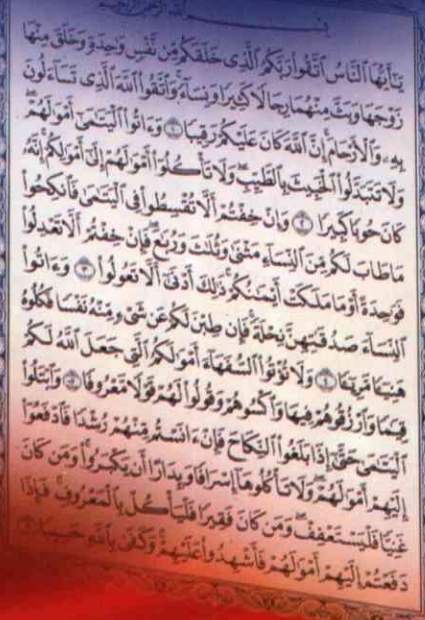 بِسۡمِ ٱللَّهِ ٱلرَّحۡمَٰنِ ٱلرَّحِيمِ
يَٰٓأَيُّهَا ٱلنَّاسُ ٱتَّقُواْ رَبَّكُمُ ٱلَّذِي خَلَقَكُم مِّن نَّفۡسٖ وَٰحِدَةٖ وَخَلَقَ مِنۡهَا
زَوۡجَهَا وَبَثَّ مِنۡهُمَا رِجَالٗا كَثِيرٗا وَنِسَآءٗۚ وَٱتَّقُواْ ٱللَّهَ ٱلَّذِي تَسَآءَلُونَ
بِهِۦ وَٱلۡأَرۡحَامَۚ إِنَّ ٱللَّهَ كَانَ عَلَيۡكُمۡ رَقِيبٗا ١ وَءَاتُواْ ٱلۡيَتَٰمَىٰٓ أَمۡوَٰلَهُمۡۖ
وَلَا تَتَبَدَّلُواْ ٱلۡخَبِيثَ بِٱلطَّيِّبِۖ وَلَا تَأۡكُلُوٓاْ أَمۡوَٰلَهُمۡ إِلَىٰٓ أَمۡوَٰلِكُمۡۚ إِنَّهُۥ
كَانَ حُوبٗا كَبِيرٗا ٢ وَإِنۡ خِفۡتُمۡ أَلَّا تُقۡسِطُواْ فِي ٱلۡيَتَٰمَىٰ فَٱنكِحُواْ
مَا طَابَ لَكُم مِّنَ ٱلنِّسَآءِ مَثۡنَىٰ وَثُلَٰثَ وَرُبَٰعَۖ فَإِنۡ خِفۡتُمۡ أَلَّا تَعۡدِلُواْ
فَوَٰحِدَةً أَوۡ مَا مَلَكَتۡ أَيۡمَٰنُكُمۡۚ ذَٰلِكَ أَدۡنَىٰٓ أَلَّا تَعُولُواْ ٣ وَءَاتُواْ
ٱلنِّسَآءَ صَدُقَٰتِهِنَّ نِحۡلَةٗۚ فَإِن طِبۡنَ لَكُمۡ عَن شَيۡءٖ مِّنۡهُ نَفۡسٗا فَكُلُوهُ
هَنِيٓـٔٗا مَّرِيٓـٔٗا ٤ وَلَا تُؤۡتُواْ ٱلسُّفَهَآءَ أَمۡوَٰلَكُمُ ٱلَّتِي جَعَلَ ٱللَّهُ لَكُمۡ
قِيَٰمٗا وَٱرۡزُقُوهُمۡ فِيهَا وَٱكۡسُوهُمۡ وَقُولُواْ لَهُمۡ قَوۡلٗا مَّعۡرُوفٗا ٥ وَٱبۡتَلُواْ
ٱلۡيَتَٰمَىٰ حَتَّىٰٓ إِذَا بَلَغُواْ ٱلنِّكَاحَ فَإِنۡ ءَانَسۡتُم مِّنۡهُمۡ رُشۡدٗا فَٱدۡفَعُوٓاْ
إِلَيۡهِمۡ أَمۡوَٰلَهُمۡۖ وَلَا تَأۡكُلُوهَآ إِسۡرَافٗا وَبِدَارًا أَن يَكۡبَرُواْۚ وَمَن كَانَ
غَنِيّٗا فَلۡيَسۡتَعۡفِفۡۖ وَمَن كَانَ فَقِيرٗا فَلۡيَأۡكُلۡ بِٱلۡمَعۡرُوفِۚ فَإِذَا
دَفَعۡتُمۡ إِلَيۡهِمۡ أَمۡوَٰلَهُمۡ فَأَشۡهِدُواْ عَلَيۡهِمۡۚ وَكَفَىٰ بِٱللَّهِ حَسِيبٗا ٦